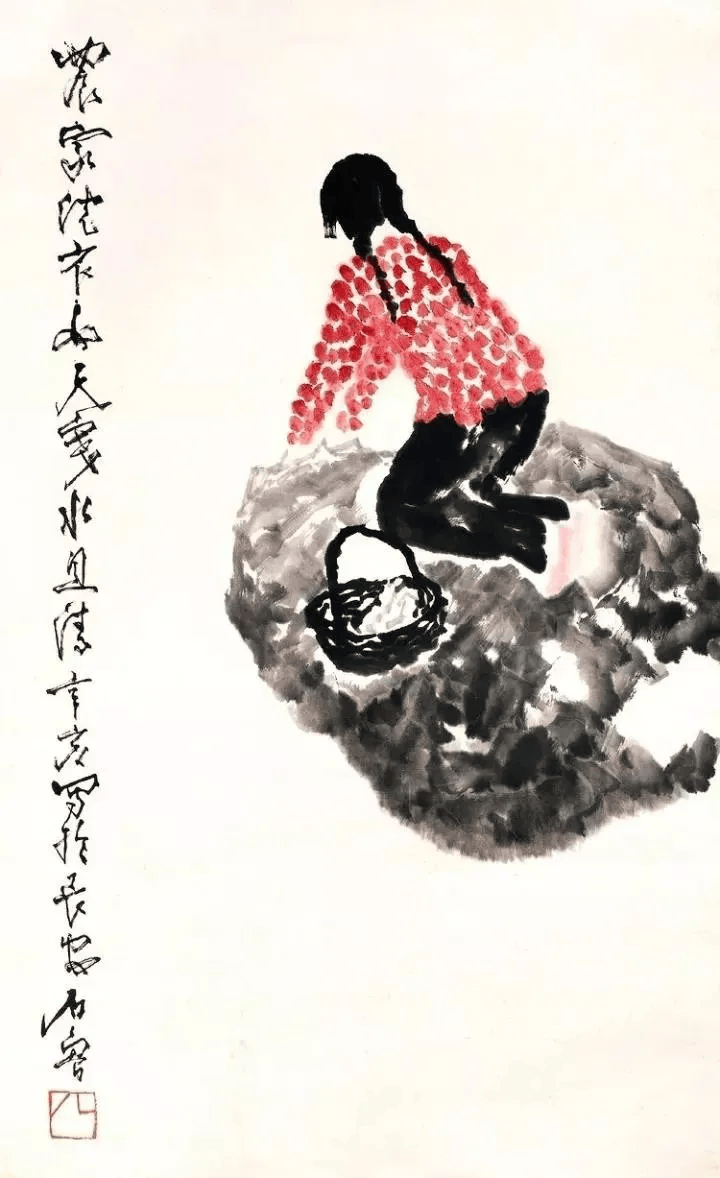 農家衣女天寒水且清辛亥寫於長安石魯